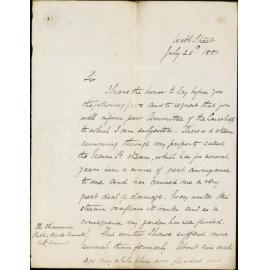 Webb Street
July 25th 188
Sir
I have the honor to lay before you
the following & and to request that you
will inform your Committee of the Council
to which I am subject. There is a stream
running through my property called
the stream, which has for several
years been a source of great annoyance
to me and has caused me a very
great deal of damage. Every winter this
stream overflows its banks and as a
consequence my garden has been flooded.
This winter I have suffered more
severely than formerly. About one week
ago my whole place was flooded and
The Chairman
Public Works Committee
City Council